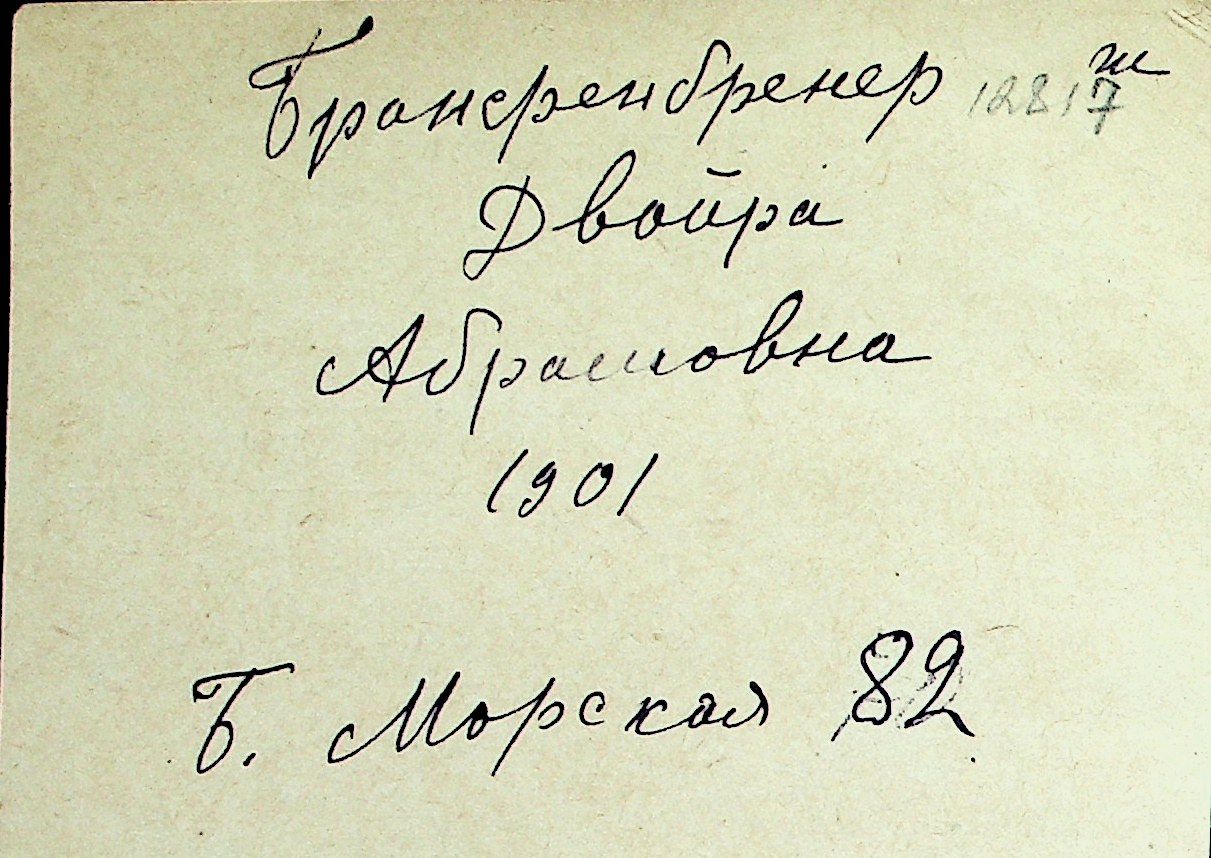 Брансренбренер 12817 ж
Двойра
Абрамовна
1901
Б. Морская 82